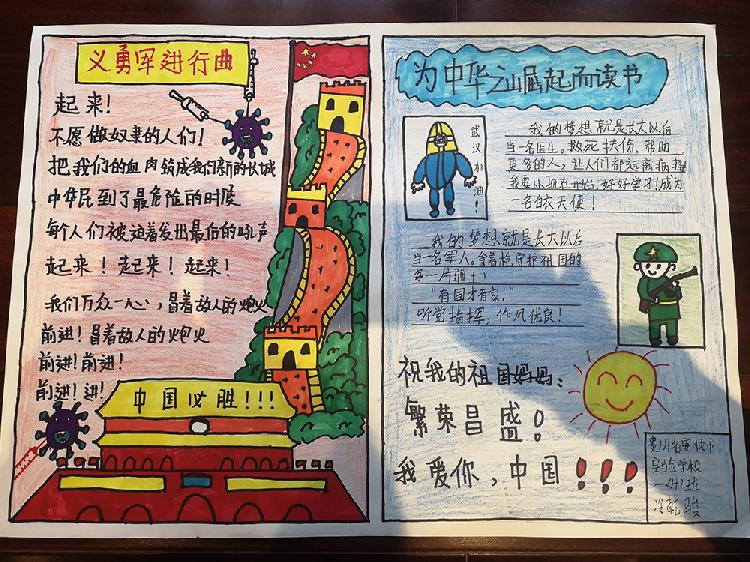 义勇军进行曲
起来！
不愿做奴隶的人们！
把我们的血肉筑成我们新的长城
中华民到了最危险的时候
每个人们被迫着发出最后的吼声
起来！起来！起来！
我们万众一心，冒着敌人的炮火
前进！冒着敌人的炮火
前进！前进！
前进！进！
中国必胜！！！
为中华之崛起而读书
武汉加油！
我的梦想就是长大以后
当一名医生。救死扶伤，帮助
更多的人。让人们都远离病
好好学习，成为
一名白衣天使！
我的梦想就是长大以后
当一名军人。拿着枪守护祖国的
每一片疆土！
“有国才有家。”
听党指挥，作风优良！
祝我的祖国妈妈：
繁荣昌盛！
我爱你，中国！！！
实验学校